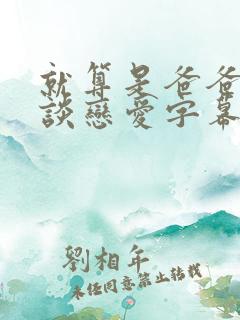 就算是爸爸
談戀愛字幕
劉相年
未經同意禁止轉載